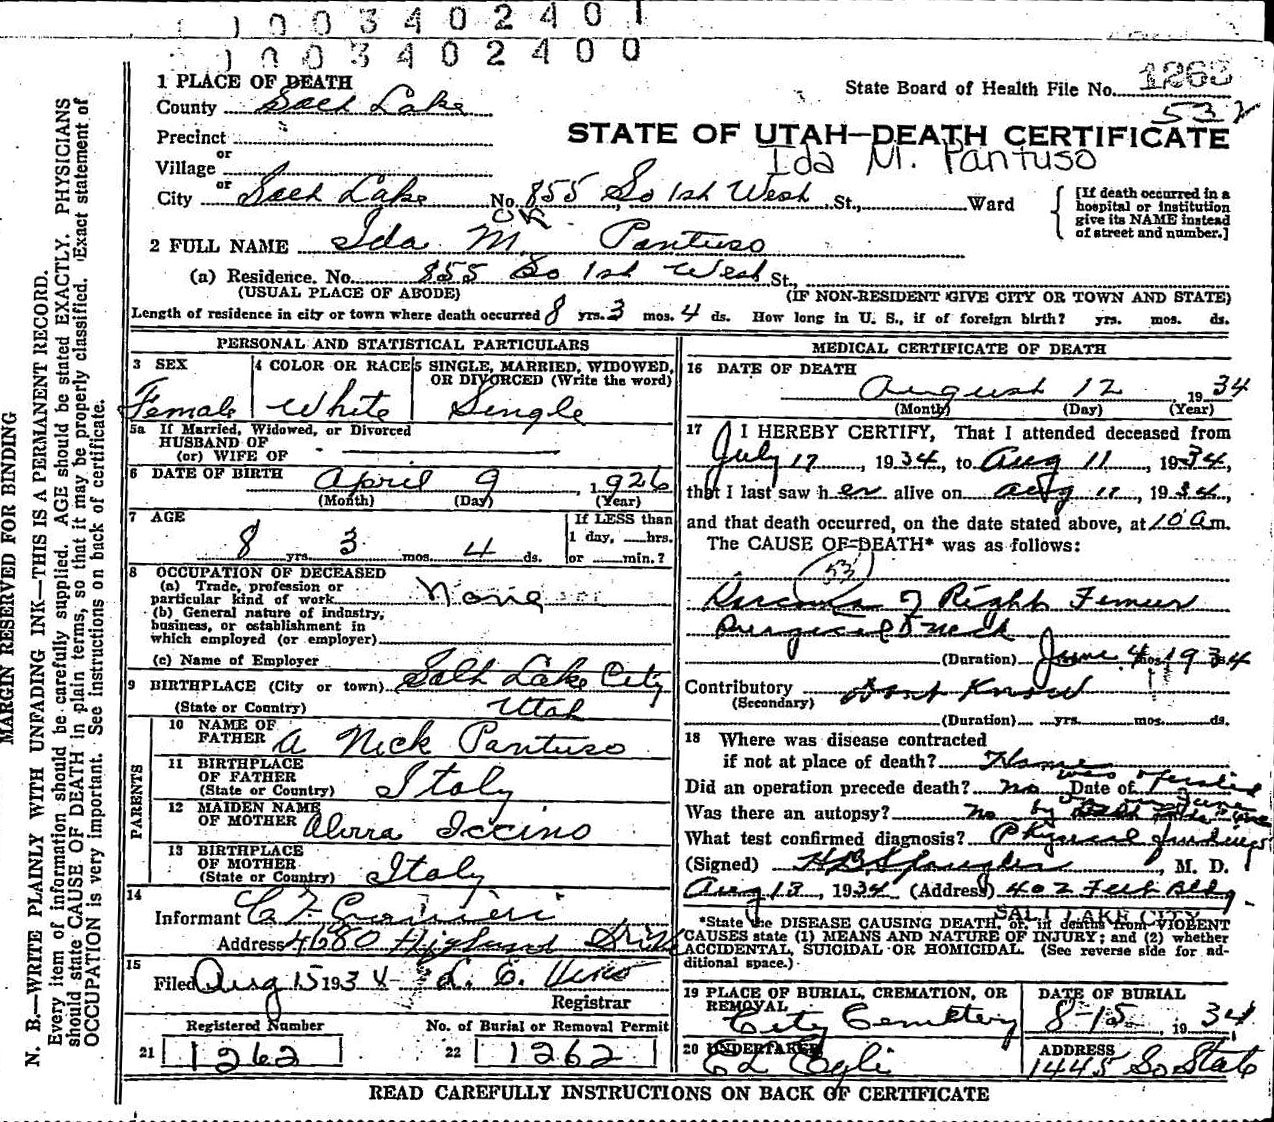 1 0 0 3 4 0 2 4 0 1
1 0 0 3 4 0 2 4 0 0
1 PLACE OF DEATH
State Board of Health File No. 1263
County Salt Lake
532
Precinct
STATE OF UTAH—DEATH CERTIFICATE
or
Ida M. Pantuso
Village
or
City Salt Lake No. 855 So 1st West St., Ward
[If death occurred in a hospital or institution give its NAME instead of street and number.]
OK
2 FULL NAME Ida M. Pantuso
(a) Residence. No. 855 So 1st West St.,
(USUAL PLACE OF ABODE) (IF NON-RESIDENT GIVE CITY OR TOWN AND STATE)
Length of residence in city or town where death occurred 8 yrs. 3 mos. 4 ds. How long in U. S., if of foreign birth? yrs. mos. ds.
PERSONAL AND STATISTICAL PARTICULARS
3 SEX Female
4 COLOR OR RACE White
5 SINGLE, MARRIED, WIDOWED, OR DIVORCED (Write the word) Single
5a If Married, Widowed, or Divorced
HUSBAND OF
(or) WIFE OF
6 DATE OF BIRTH April 9, 1926
(Month) (Day) (Year)
7 AGE
8 yrs. 3 mos. 4 ds.
If LESS than
1 day, hrs.
or min.?
8 OCCUPATION OF DECEASED
(a) Trade, profession or
particular kind of work None
(b) General nature of industry,
business, or establishment in
which employed (or employer)
(c) Name of Employer
9 BIRTHPLACE (City or town) Salt Lake City
(State or Country) Utah
PARENTS
10 NAME OF
FATHER A Nick Pantuso
11 BIRTHPLACE
OF FATHER
(State or Country) Italy
12 MAIDEN NAME
OF MOTHER
13 BIRTHPLACE
OF MOTHER
(State or Country) Italy
14
Informant
Address 4680 Highland Drive
15
Filed Aug 15 1934
Registrar
Registered Number
21 1262
No. of Burial or Removal Permit
22 1262
MEDICAL CERTIFICATE OF DEATH
16 DATE OF DEATH
August 12 1934
(Month) (Day) (Year)
17 I HEREBY CERTIFY, That I attended deceased from
July 17, 1934, to Aug 11, 1934,
that I last saw her alive on Aug 11, 1934,
and that death occurred, on the date stated above, at 10 am.
The CAUSE OF DEATH* was as follows:
53
Sarcoma of Right Femur
Surgical Neck
(Duration) June 4 1934
Contributory Dont Know
(Secondary)
(Duration) yrs. mos. ds.
18 Where was disease contracted
if not at place of death? Home
Did an operation precede death? no Date of
Was there an autopsy? no
What test confirmed diagnosis? Physical findings
(Signed) M. D.
Aug 13, 1934 (Address) 402 Bldg
SALT LAKE CITY
*State the DISEASE CAUSING DEATH, or, in deaths from VIOLENT
CAUSES state (1) MEANS AND NATURE OF INJURY; and (2) whether
ACCIDENTAL, SUICIDAL OR HOMICIDAL. (See reverse side for ad-
ditional space.)
19 PLACE OF BURIAL, CREMATION, OR
REMOVAL
City Cemetery
DATE OF BURIAL
8-15, 1934
20 UNDERTAKER
ADDRESS
1445 So State
READ CAREFULLY INSTRUCTIONS ON BACK OF CERTIFICATE
MARGIN RESERVED FOR BINDING
N. B.—WRITE PLAINLY WITH UNFADING INK—THIS IS A PERMANENT RECORD.
Every item of information should be carefully supplied. AGE should be stated EXACTLY. PHYSICIANS
should state CAUSE OF DEATH in plain terms, so that it may be properly classified. Exact statement of
OCCUPATION is very important. See instructions on back of certificate.